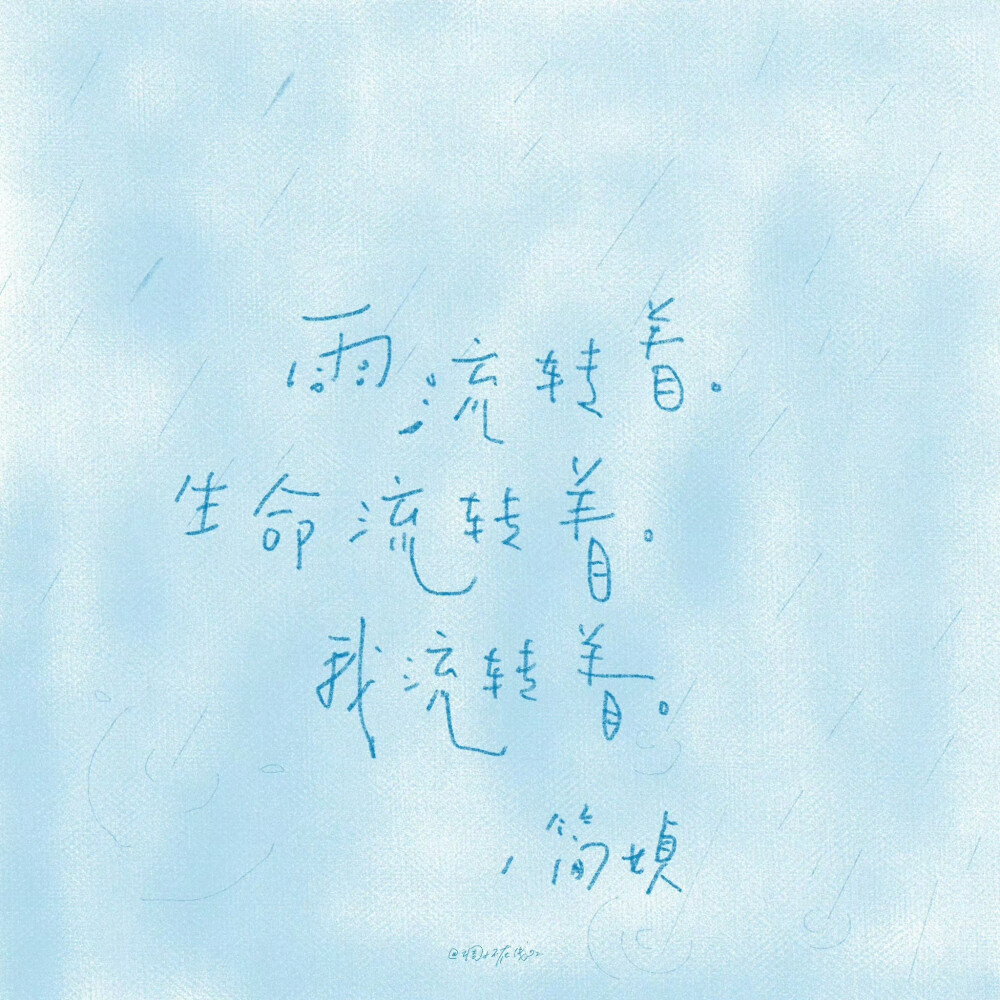 雨流转着。
生命流转着。
我流转着。
简媜